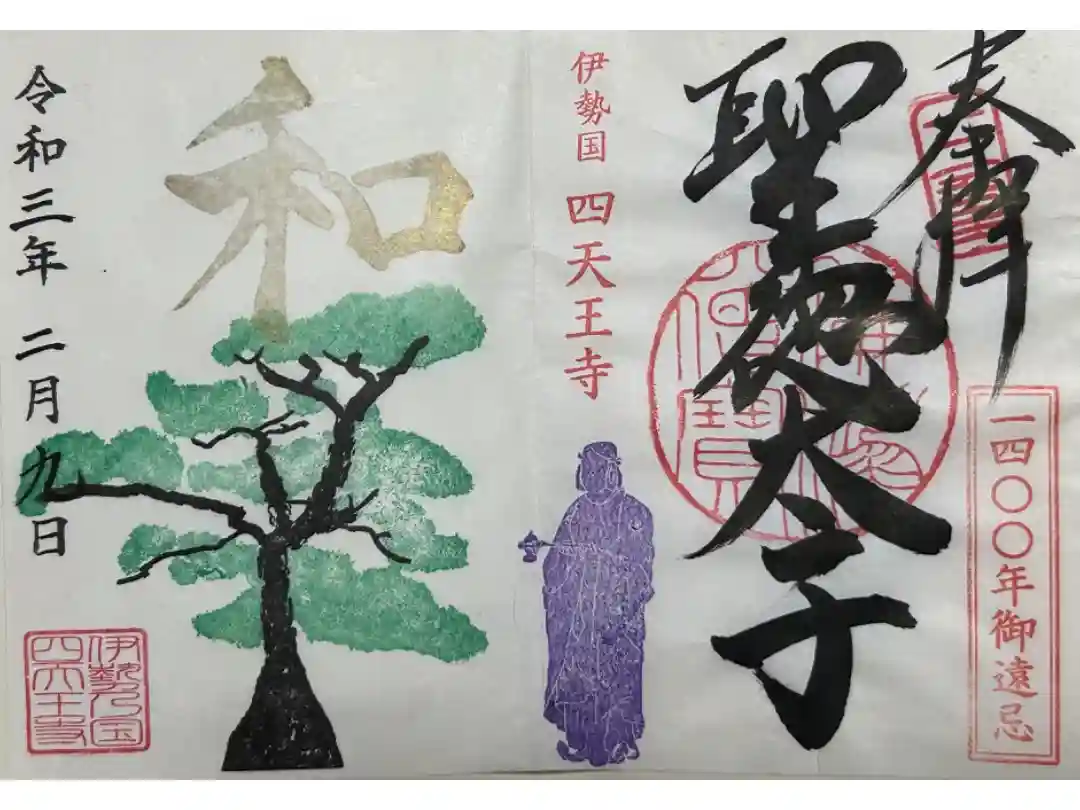 奉拝
聖徳太子
一四〇〇年御遠忌
伊勢国 四天王寺
和
令和三年 二月九日
伊勢国
四天王寺